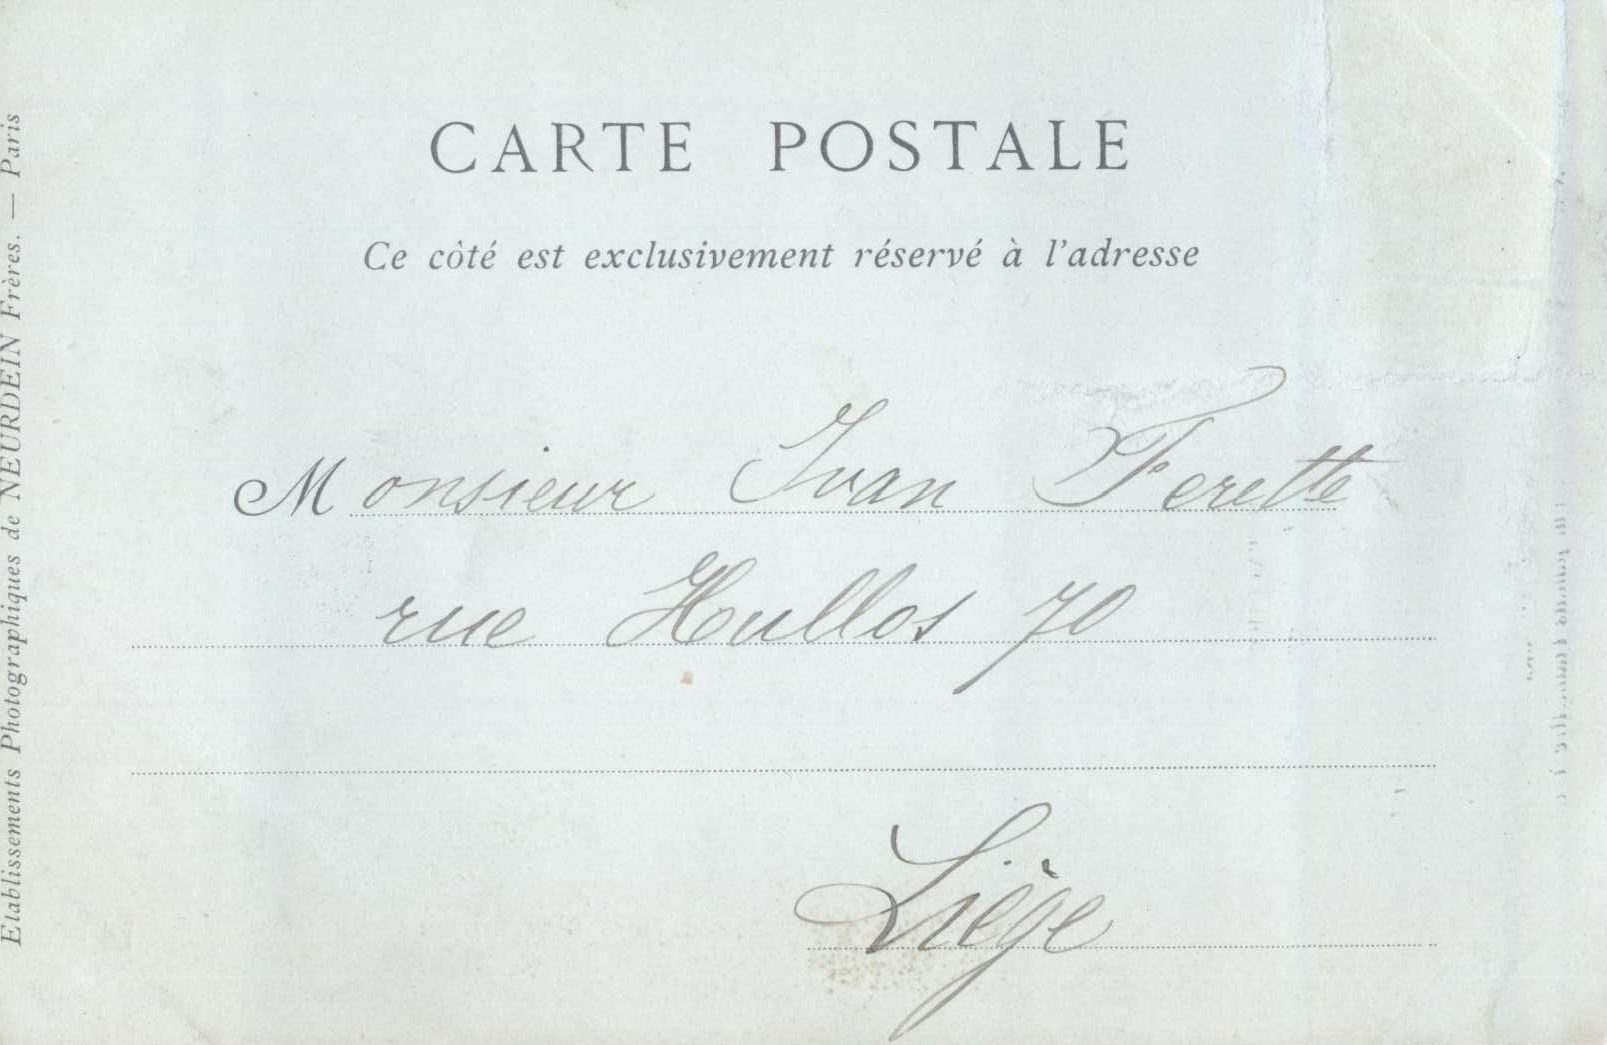 CARTE POSTALE
Ce côté est exclusivement réservé à l'adresse
Monsieur Ivan Ferette
rue Hullos 70
Liége
Etablissements Photographiques de NEURDEIN Frères. — Paris